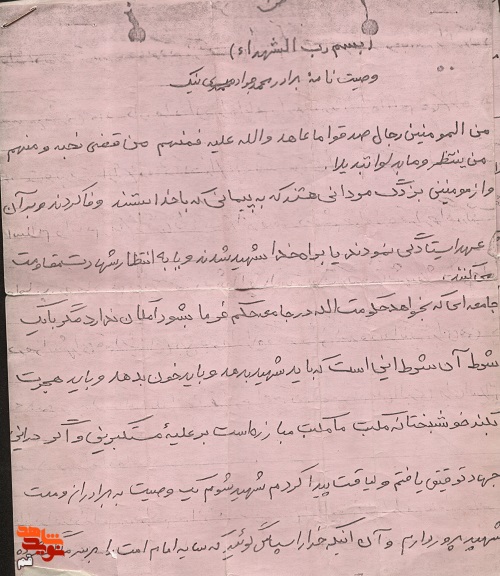 (بسم رب الشهداء)
وصیت نامه برادر محمد جواد نیک
من المومنین رجال صدقوا ما عاهد والله علیه فمنهم من قضی نحبه و منهم
من ینتظر و ما بدلوا تبدیلا.
و از مومنین بزرگ مردانی هستند که به پیمانی که با خدا بستند وفا کردند و بر آن
عهد ایستادگی نمودند یا براه خدا شهید شدند و یا به انتظار شهادت مقاومت
می کنند.
جامعه ای که بخواهد حکومت الله در جامعه حکم فرما بشود امکان ندارد مگر با یک
شرط آن شرط اینی است که باید شهید بدهد و باید خون بدهد و باید هجرت
بکند خوشبختانه مکتب ما مکتب مبارزه است بر علیه مستکبرین و اگر در این
جهاد توفیق یافتم و لیاقت پیدا کردم شهید شوم یک وصیت به برادران و ملت
شهید پرور دارم و آن اینکه خدا را سپاس گوئید که سایه امام امت را بر سر
شاهد
نوید
قم